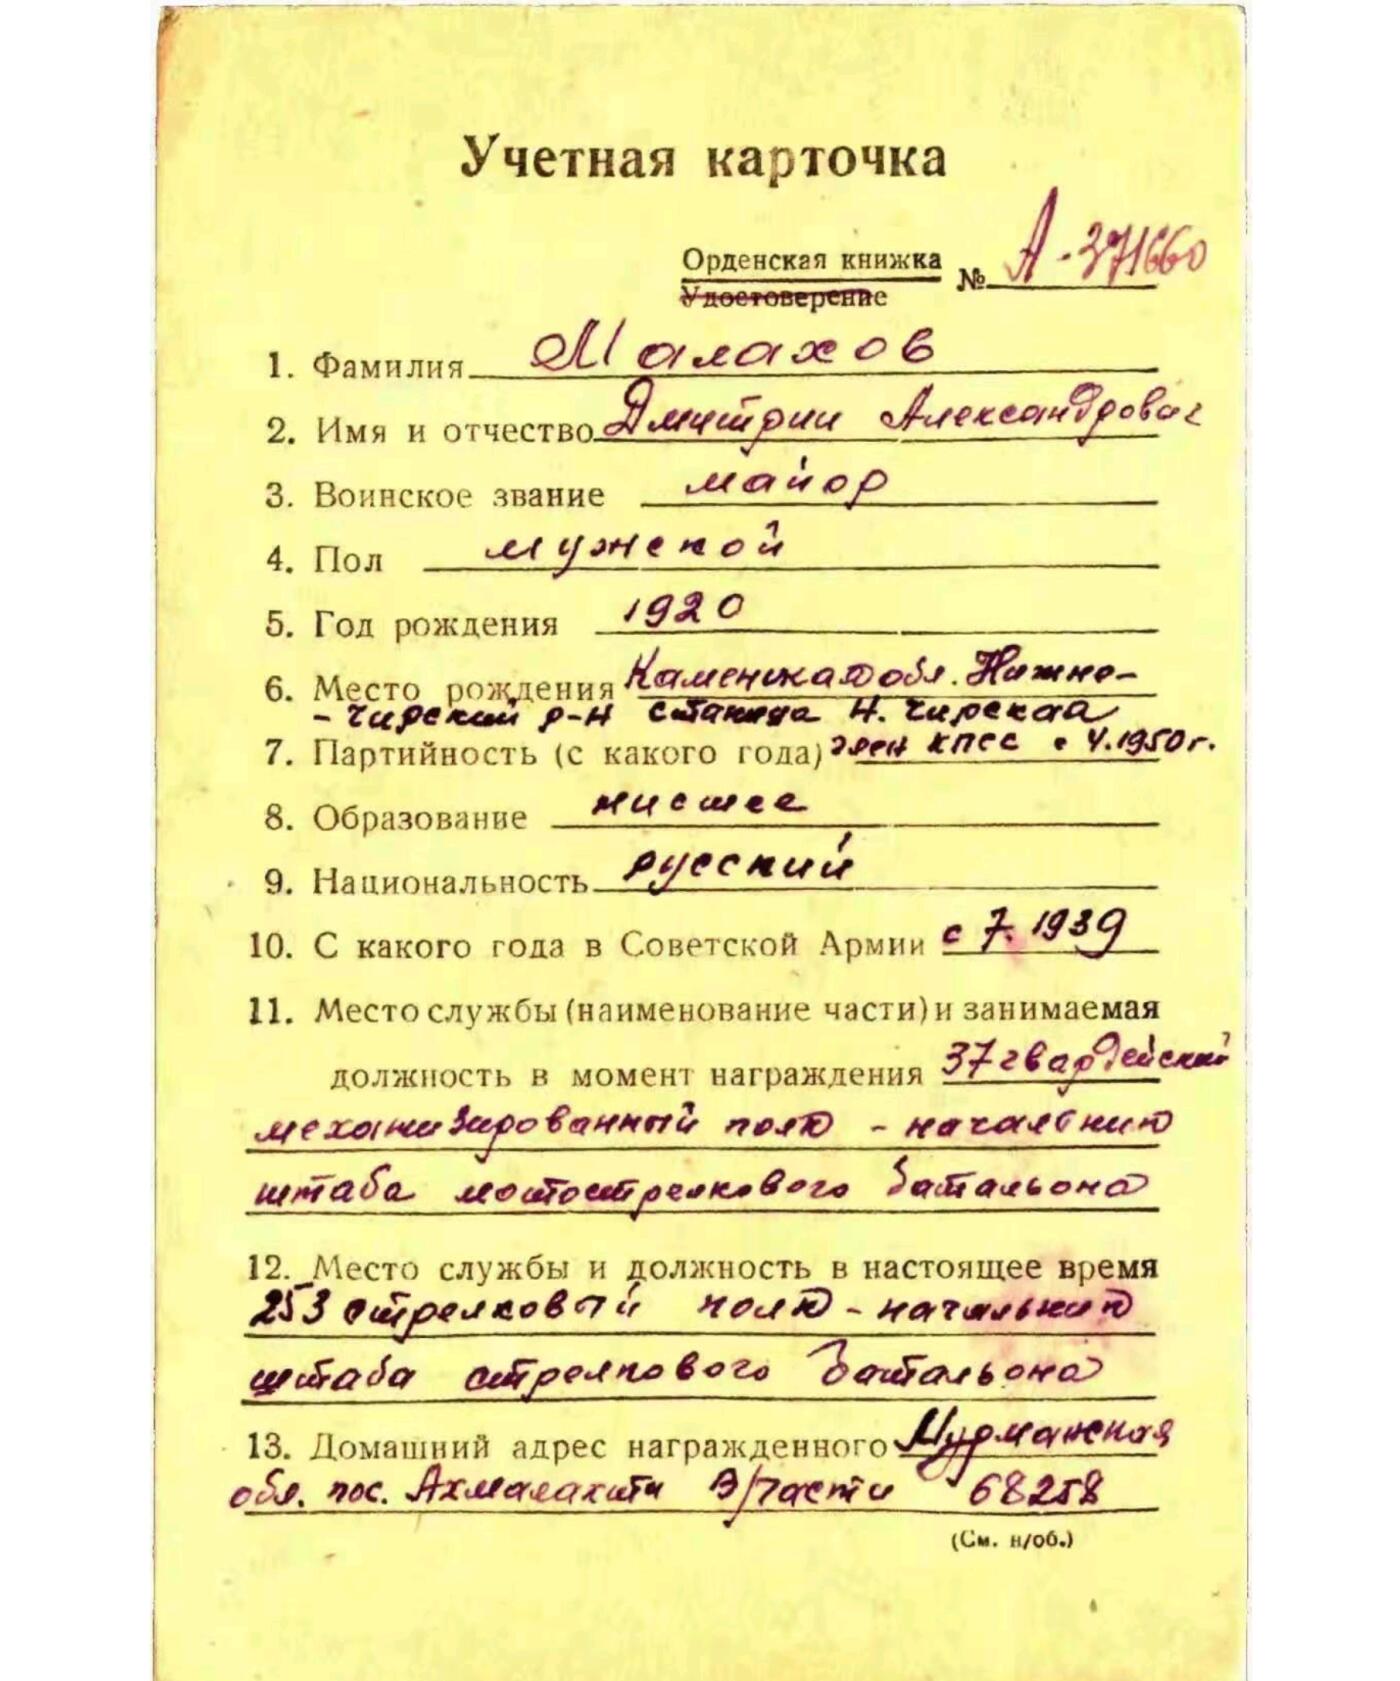 Учетная карточка
Орденская книжка
Удостоверение
№ А-371660
1. Фамилия Малахов
2. Имя и отчество Дмитрии Александрович
3. Воинское звание майор
4. Пол мужской
5. Год рождения 1920
6. Место рождения Каменская обл. Нижне-
-Чирский р-н станица Н. Чирская
7. Партийность (с какого года) член КПСС с 4.1950г.
8. Образование нисшее
9. Национальность русский
10. С какого года в Советской Армии с 7. 1939
11. Место службы (наименование части) и занимаемая
должность в момент награждения 37 гвардейский
механизированный полк - начальник
штаба мотострелкового батальона
12. Место службы и должность в настоящее время
253 стрелковый полк - начальник
штаба стрелкового батальона
13. Домашний адрес награжденного Мурманская
обл. пос. Ахмалахити В/части 68258
(См. н/об.)